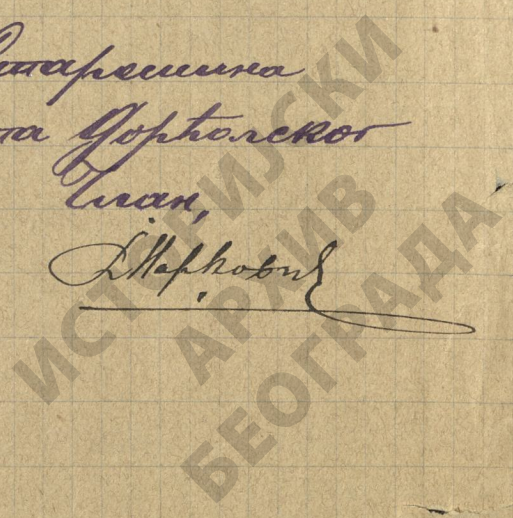 Старешина
та Дорћолског
Члан,
Марковић
ИСТОРИЈСКИ
АРХИВ
БЕОГРАДА